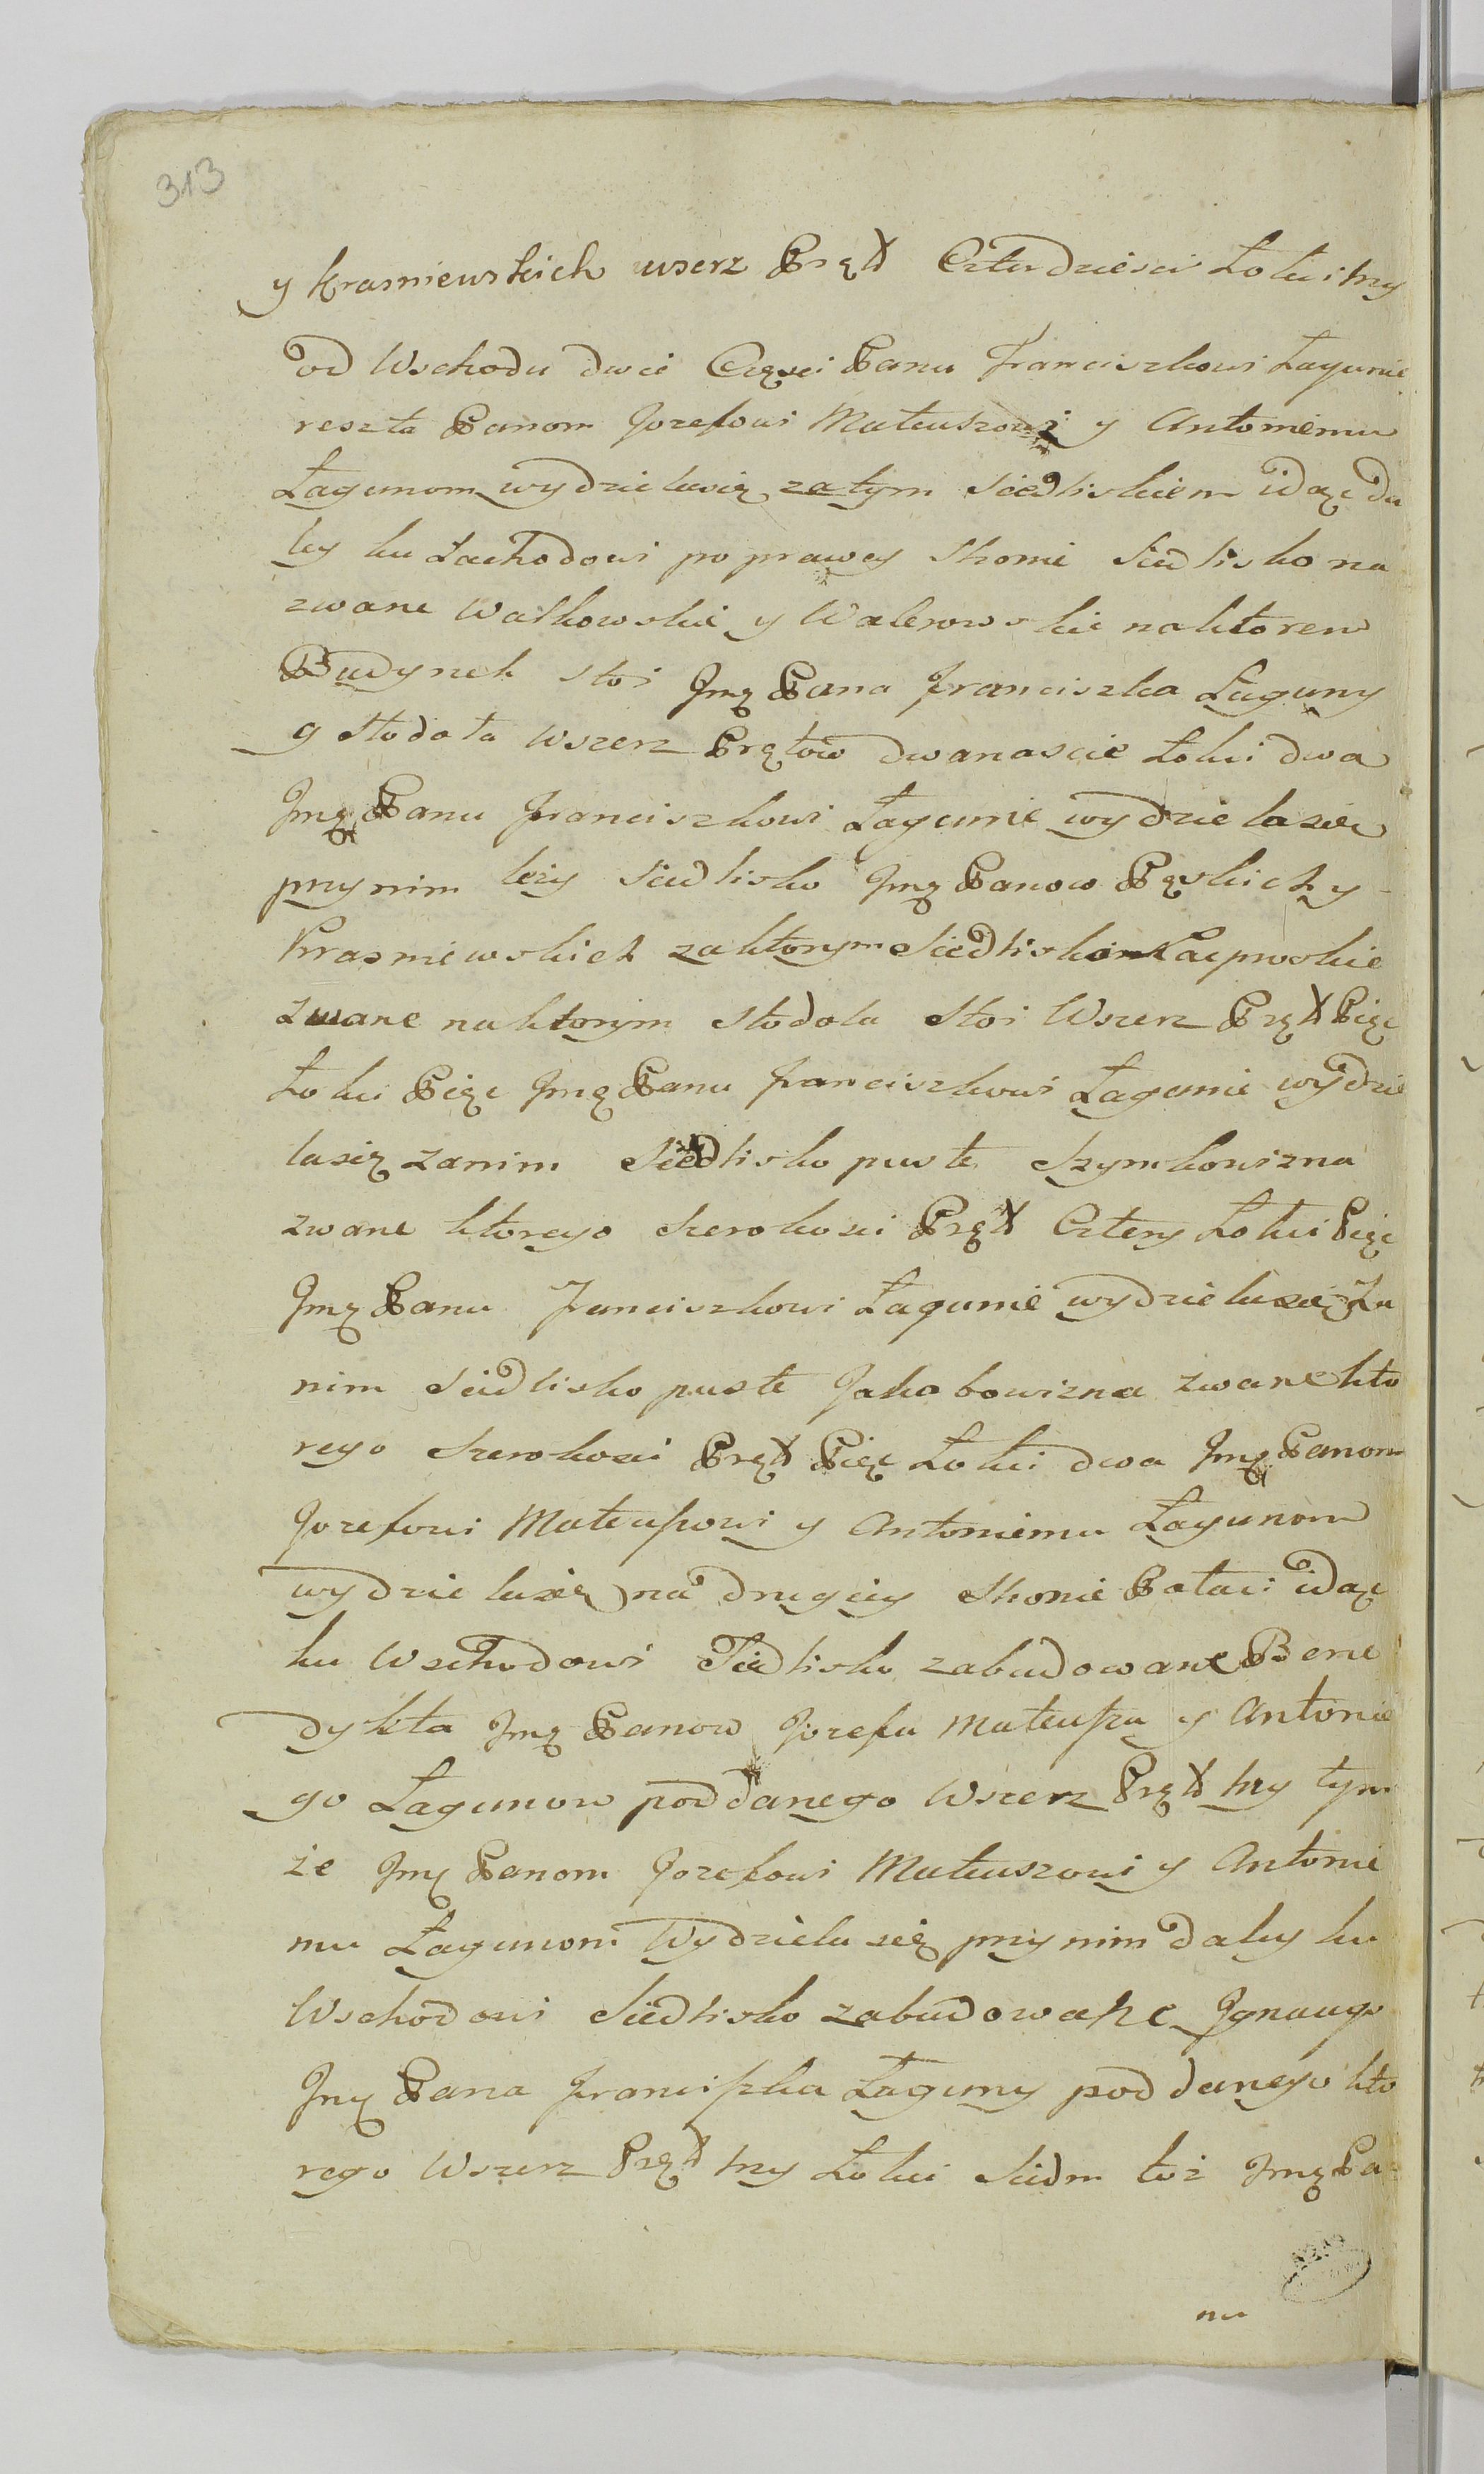 313
y Krasniewskich wserz Pręt Czterdziesci Łokci trzy
od Wschodu dwie Częsci Panu Franciszkowi Łagunie
reszta Panom Jozefowi Mateuszowi y Antoniemu
Łagunom wydziela się za tym Siedliskiem idąc da
ley ku Zachodowi po prawey stronie Siedlisko na
zwane Walkowskie y Walerowskie na ktorem
Budynek stoi Jmę Pana Franciszka Łaguny
y Stodoła Wszerz Prętow dwanascie Łokci dwa
Jmę Panu Franciszkowi Łagunie wydziela się
przy nim leży Siedlisko Jmę Panow Pęskich y
Krasniewskich za ktorym Siedlisko Kacprowskie
zwane na ktorym Stodoła stoi Wszerz Pręt Pięc
Łokci Pięc Jmę Panu Franciszkowi Łagunie wydzie
la się za nim Siedlisko puste Szymkowizna
zwane ktorego Szerokosci Pręt Cztery Łokci Pięc
Jmę Panu Franciszkowi Łagunie wydziela się Za
nim Siedlisko puste Jakobowizna zwane kto
rego Szerokosci Pręt Pięc Łokci dwa Jmę Panom
Jozefowi Mateuszowi y Antoniemu Łagunom
wydziela się na drugiey stronie Połaci idąc
ku Wschodowi Siedlisko zabudowane Bene
dykta Jmę Panow Jozefa Mateusza y Antonie
go Łagunow poddanego Wszerz Pręt trzy tym
że Jmę Panom Jozefowi Mateuszowi y Antonie
mu Łagunom Wydziela się przy nim daley ku
Wschodowi Siedlisko zabudowane Ignacego
Jmę Pana Franciszka Łaguny poddanego kto
rego Wszerz Pręt trzy Łokci Siedm toż Jmę Pa
nu